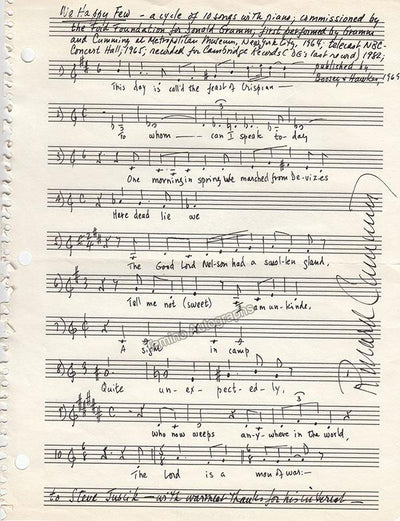 We Happy Few – a cycle of 10 songs with piano, commissioned by
the Ford Foundation for Donald Gramm, first performed by Gramm
and Cumming at Metropolitan Museum, New York City, 1964; telecast NBC-
Concert Hall, 1965, recorded for Cambridge Records (DG's last record) 1982;
published by
Boosey & Hawkes, 1969
1)
This day is call'd the feast of Crispian –
2)
3
To whom — can I speak to-day
3)
One morning in spring We marched from De-vizes
4)
Here dead lie we
5)
The Good Lord Nel-son had a swol-len gland,
6)
Tell me not (sweet) I am un-kinde,
7)
A sight in camp
Tamino Autographs
8)
Quite un-ex-pect-ed-ly,
9)
3
Who now weeps an-y-where in the world,
10
The Lord is a man of war:–
Richard Cumming
to Steve – with warmest thanks for his interest –